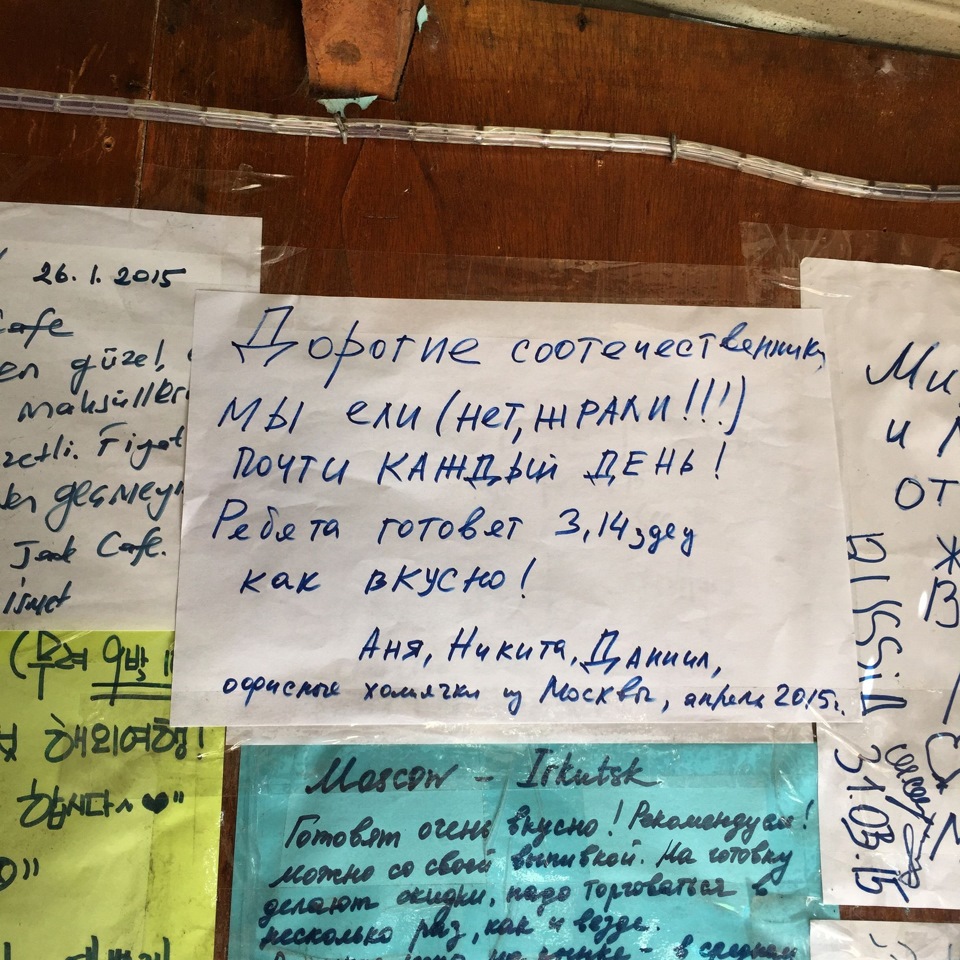 26.1.2015
Cafe
güzel,
geçmey
Jack Cafe.
Дорогие соотечественники,
мы ели (нет, ЖРАЛИ!!!)
почти КАЖДЫЙ ДЕНЬ!
Ребята готовят 3,14здец
как вкусно!
Аня, Никита, Даниил,
офисные хомячки из Москвы, апрель 2015г.
(무려 9박
해외여행!
합시다~ ♥"
Moscow - Irkutsk
Готовят очень вкусно! Рекомендуем!
можно со своей выпивкой. На готовку
делают скидки, надо торговаться в
несколько раз, как и везде.
в среднем
Ми
и
от
Ж
В
RUSSIA
31.03.15